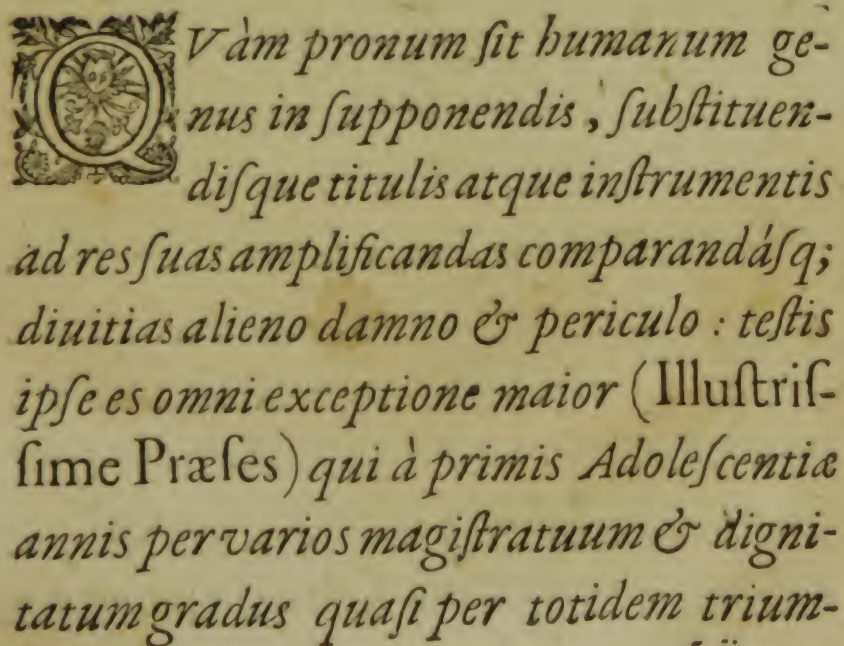 QVàm pronum ſit humanum ge-
nus in ſupponendis, ſubſtituen-
diſque titulis atque inſtrumentis
ad res ſuas amplificandas comparandáſq;
diuitias alieno damno & periculo : teſtis
ipſe es omni exceptione maior (Illuſtriſ-
ſime Præſes) qui à primis Adoleſcentiæ
annis per varios magiſtratuum & digni-
tatum gradus quaſi per totidem trium-